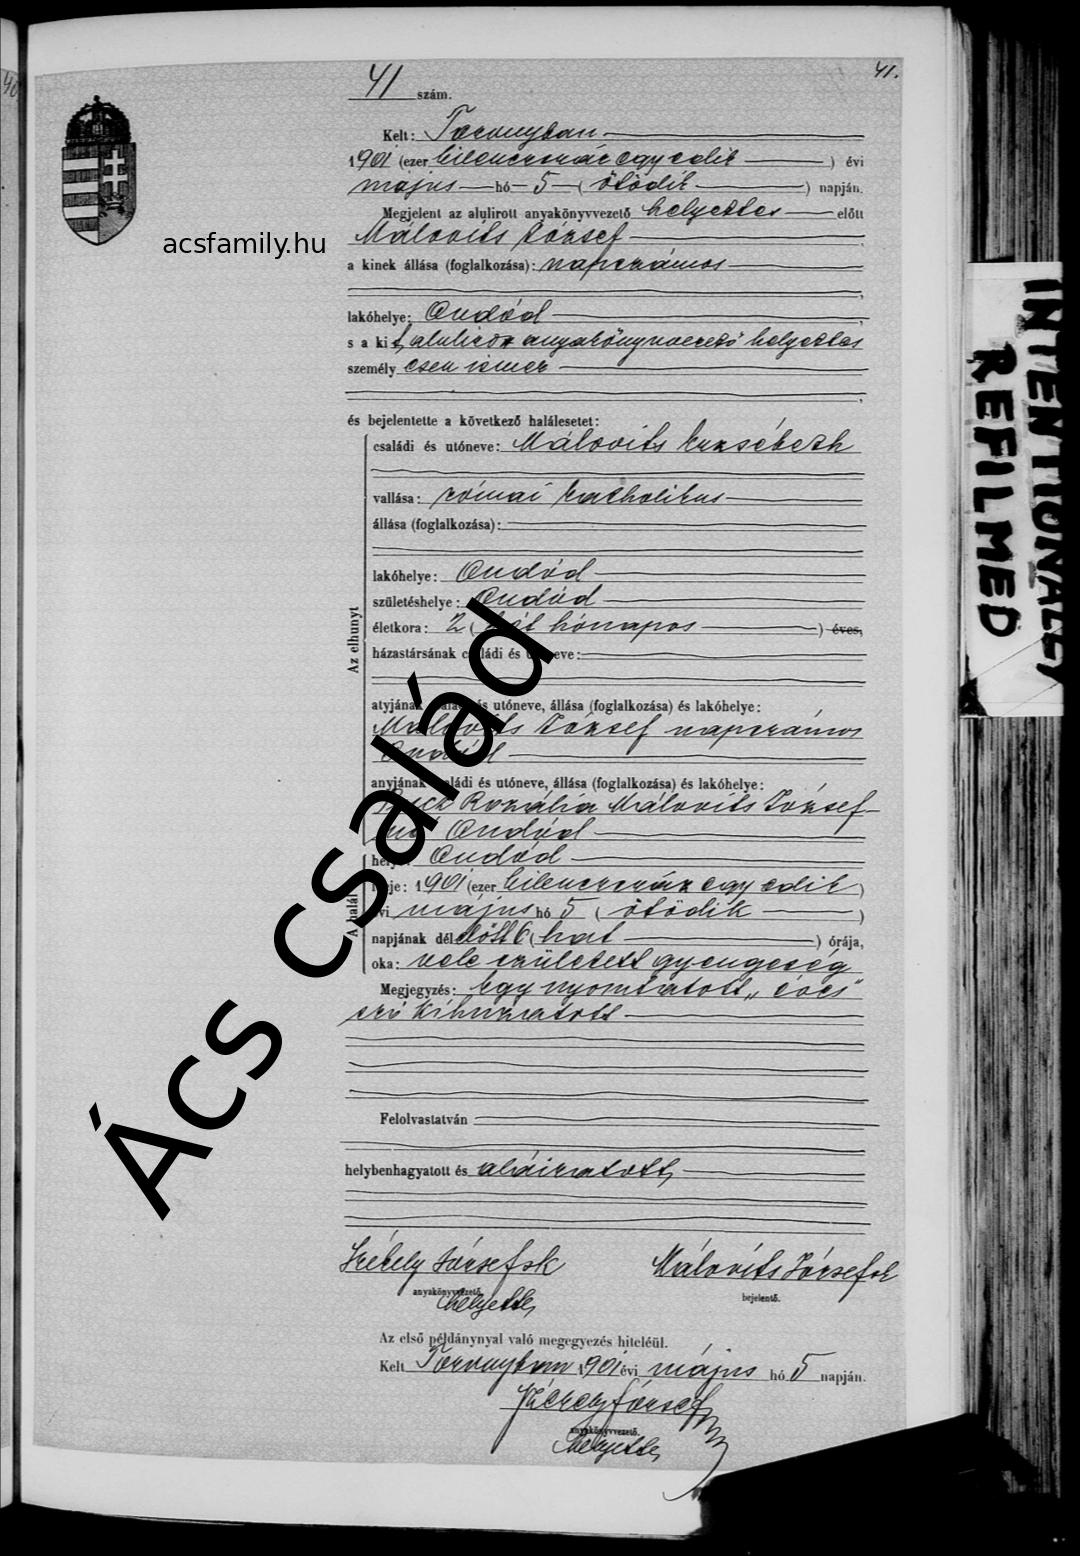 41.
41 szám.
Kelt: Toronyban
1901 (ezer kilenczszáz egyedik) évi
május hó 5 (ötödik) napján.
Megjelent az alulirott anyakönyvvezető helyettes előtt
Málovits József
acsfamily.hu
a kinek állása (foglalkozása): napszámos
lakóhelye: Ondód
s a kit, alulirott anyakönyvvezető helyettes
személyesen ismer
és bejelentette a következő halálesetet:
Az elhunyt
családi és utóneve: Málovits Erzsébeth
vallása: római katholikus
állása (foglalkozása):
lakóhelye: Ondód
születéshelye: Ondód
életkora: 2 (két hónapos) éves,
házastársának családi és utóneve:
atyjának családi és utóneve, állása (foglalkozása) és lakóhelye:
Málovits József napszámos
Ondód
anyjának családi és utóneve, állása (foglalkozása) és lakóhelye:
Rozália Málovits József-
né Ondód
A halál
helye: Ondód
ideje: 1901 (ezer kilenczszáz egyedik)
évi május hó 5 (ötödik)
napjának délelőtt 6 (hat) órája,
oka: vele született gyengeség
Megjegyzés: Egy nyomtatott „éves"
szó kihuzatott
Felolvastatván
helybenhagyatott és aláiratott,
Székely József sk Málovits József sk
anyakönyvvezető. bejelentő.
helyettes,
Az első példánynyal való megegyezés hiteléül.
Kelt Toronyban 1901 évi május hó 5 napján.
Székely József
anyakönyvvezető.
helyettes,
Ács család
INTENTIONALLY
REFILMED